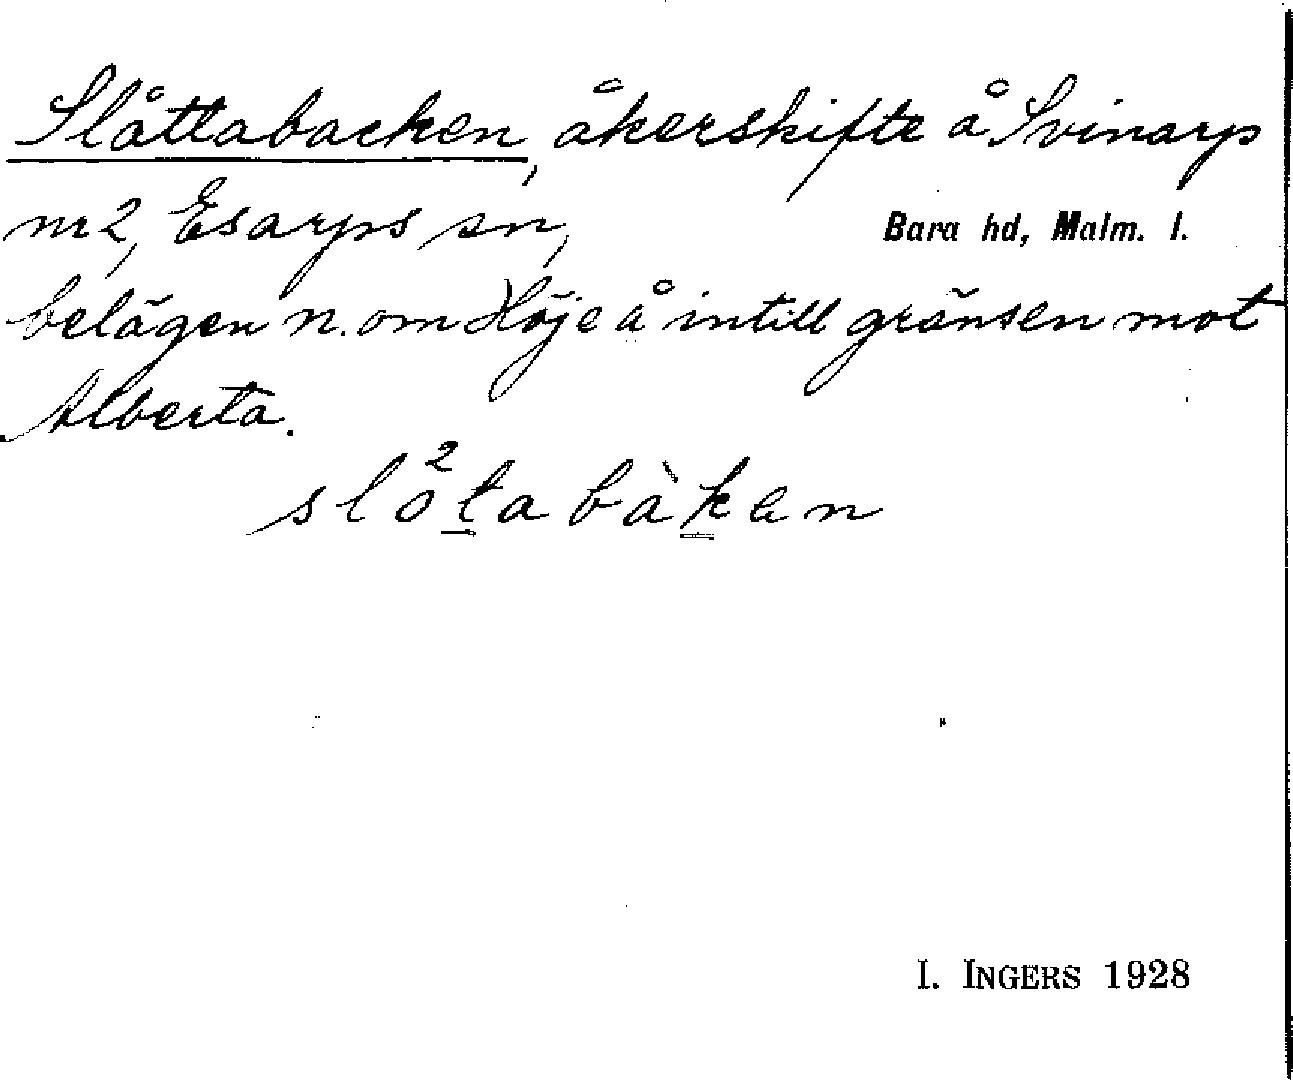 Slåttabacken, åkerskifte å Svinarp
nr 2, Esarps sn, Bara hd, Malm. l.
belägen n. om Höje å intill gränsen mot
Alberta.
slo²tabàken
I. INGERS 1928